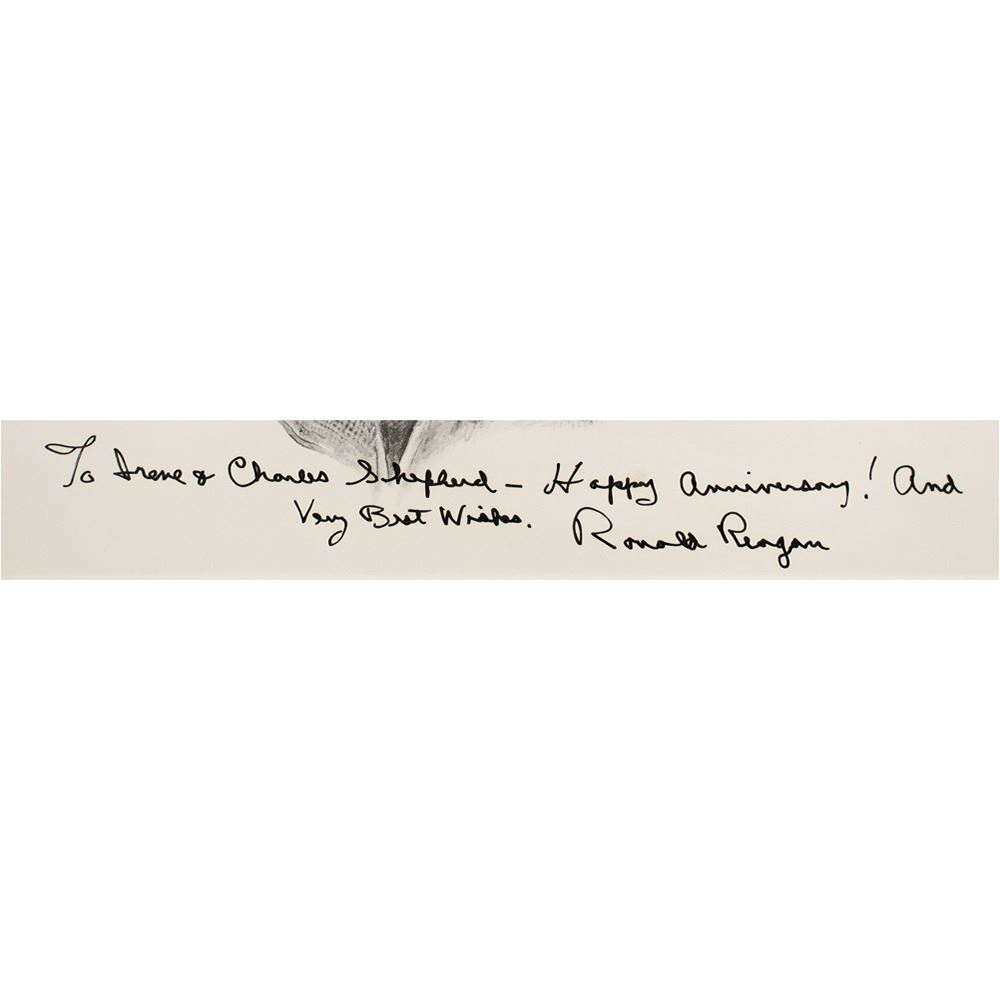 To Irene & Charles Shepherd – Happy Anniversary! And
Very Best Wishes. Ronald Reagan